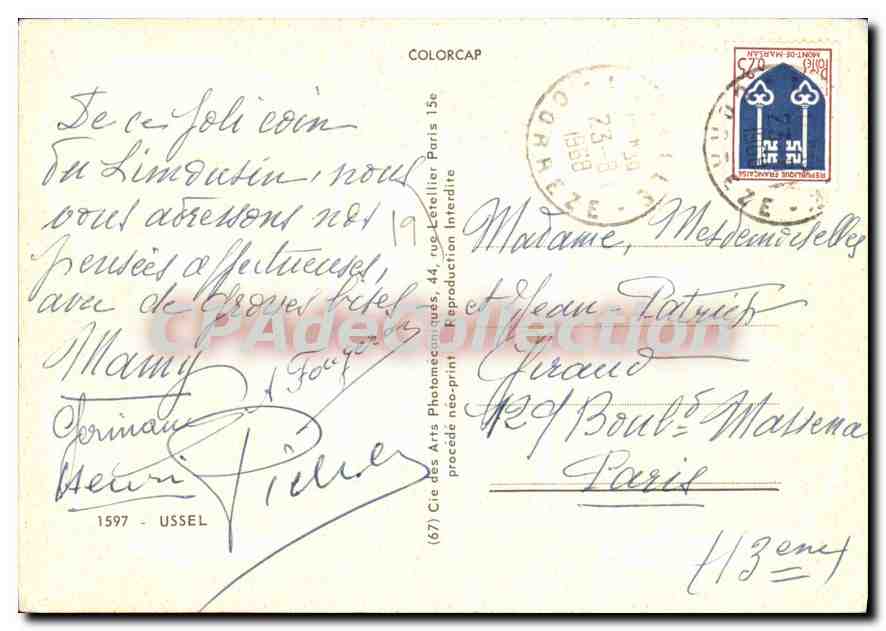 COLORCAP
De ce Joli coin
du Limousin, nous
vous adressons nos
pensées affectueuses,
avec de Grosses bises
Mamy
Germaine
Henri
1597 - USSEL
19
(67) Cie des Arts Photomécaniques, 44, rue Letellier Paris 15e
procédé néo-print - Reproduction Interdite
CORREZE
23-8
1968
CORREZE
1968
0,25
POSTES
MONT-DE-MARSAN
REPUBLIQUE FRANÇAISE
Madame, Mesdemoiselles
et Jean-Patrick
Giraud
129 Boul.d Massena
Paris
(13eme)
CPAdeCollection